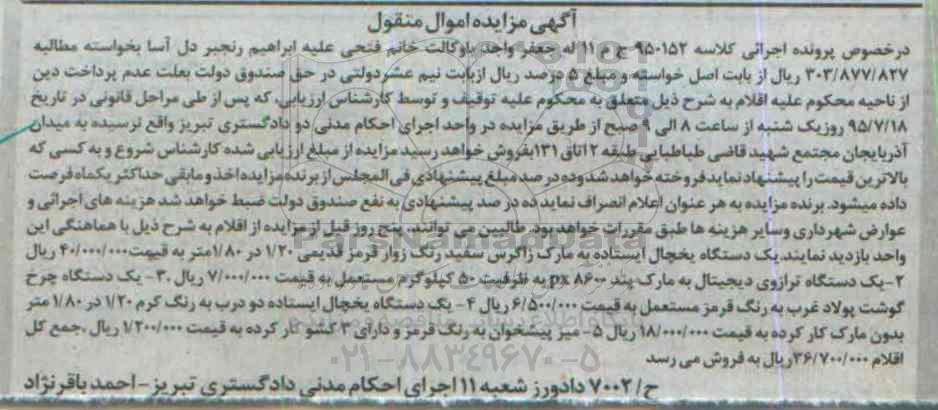 آگهی مزایده اموال منقول
درخصوص پرونده اجرائی کلاسه ۹۵۰۱۵۲ ج م ۱۱ له جعفر واجد باوکالت خانم فتحی علیه ابراهیم رنجبر دل آسا بخواسته مطالبه
۳۰۳/۸۷۷/۸۲۷ ریال از بابت اصل خواسته و مبلغ ۵ درصد ریال ازبابت نیم عشردولتی در حق صندوق دولت بعلت عدم پرداخت دین
از ناحیه محکوم علیه اقلام به شرح ذیل متعلق به محکوم علیه توقیف و توسط کارشناس ارزیابی، که پس از طی مراحل قانونی در تاریخ
۹۵/۷/۱۸ روزیک شنبه از ساعت ۸ الی ۹ صبح از طریق مزایده در واحد اجرای احکام مدنی دو دادگستری تبریز واقع نرسیده به میدان
آذربایجان مجتمع شهید قاضی طباطبایی طبقه ۲ اتاق ۱۳۱ بفروش خواهد رسید مزایده از مبلغ ارزیابی شده کارشناس شروع و به کسی که
بالاترین قیمت را پیشنهاد نماید فروخته خواهد شد و ده در صد مبلغ پیشنهادی فی المجلس از برنده مزایده اخذ و مابقی حداکثر یکماه فرصت
داده میشود. برنده مزایده به هر عنوان اعلام انصراف نماید ده در صد پیشنهادی به نفع صندوق دولت ضبط خواهد شد هزینه های اجرائی و
عوارض شهرداری وسایر هزینه ها طبق مقررات خواهد بود. طالبین می توانند، پنج روز قبل از مزایده از اقلام به شرح ذیل با هماهنگی این
واحد بازدید نمایند. یک دستگاه یخچال ایستاده به مارک زاگرس سفید رنگ زوار قرمز قدیمی ۱/۲۰ در ۱/۸۰متر به قیمت ۴۰/۰۰۰/۰۰۰ ریال
۲- یک دستگاه ترازوی دیجیتال به مارک پند px ۸۶۰۰ به ظرفیت ۵۰ کیلوگرم مستعمل به قیمت ۷/۰۰۰/۰۰۰ ریال ۳۰- یک دستگاه چرخ
گوشت پولاد غرب به رنگ قرمز مستعمل به قیمت ۶/۵۰۰/۰۰۰ ریال ۴- یک دستگاه یخچال ایستاده دو درب به رنگ کرم ۱/۲۰ در ۱/۸۰ متر
بدون مارک کار کرده به قیمت ۱۸/۰۰۰/۰۰۰ ریال ۵- میز پیشخوان به رنگ قرمز و دارای ۳ کشو کار کرده به قیمت ۱/۲۰۰/۰۰۰ ریال .جمع کل
اقلام ۳۶/۷۰۰/۰۰۰ریال به فروش می رسد
ح/ ۷۰۰۲ دادورز شعبه ۱۱ اجرای احکام مدنی دادگستری تبریز - احمد باقرنژاد
ParsNamadData
۰۲۱-۸۸۳۴۹۶۷۰-۵